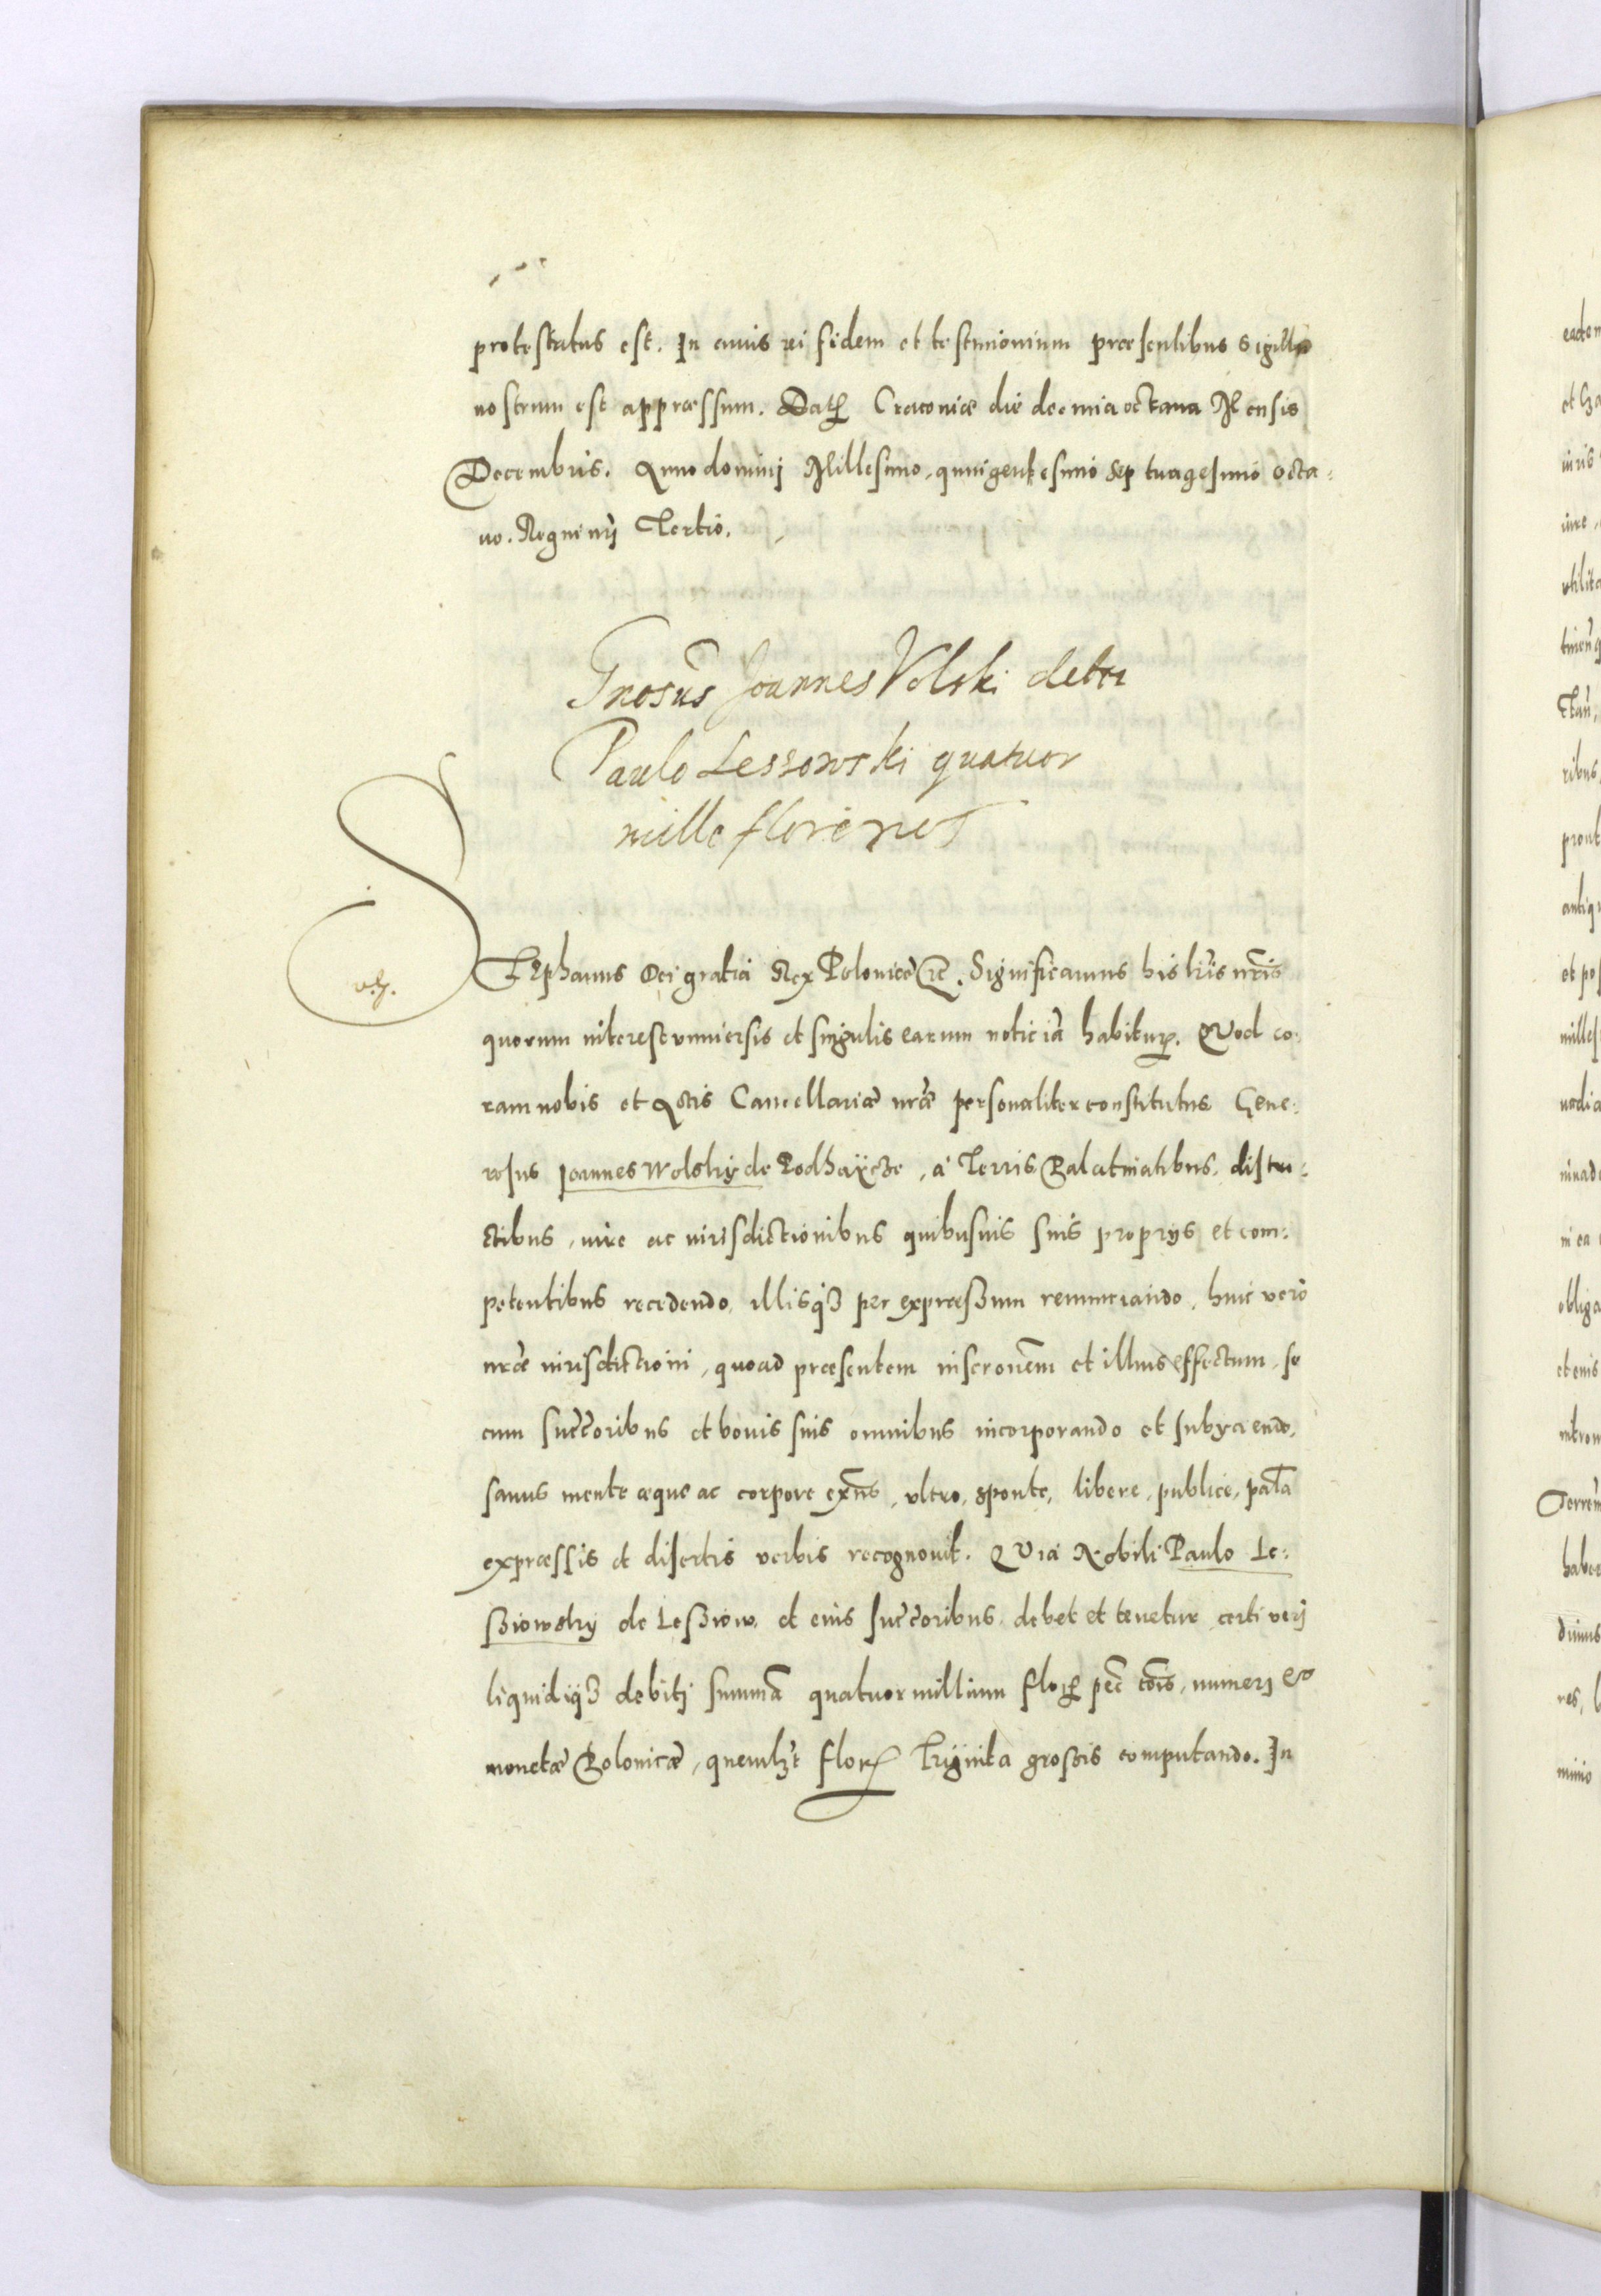 protestatus est. In cuius rei fidem et testimonium præsentibus Sigillũ
nostrum est appræssum. Datȝ Cracoviæ die decima octava Mensis
Decembris. Anno dominj Millesimo, quingentesimo septuagesimo octa-
uo. Regni nrj Tertio.
Gnosus̃ Joannes Volski debet
Paulo Lessowski quatuor
mille florenos
STephanus Dei gratia Rex Poloniæ etc. Significamus his lrĩs nrĩs
quorum interest vniuersis et singulis earum noticiã habiturȝ. QVod co-
ram nobis et Actis Cancellariæ nrẽ personaliter constitutus Gene-
rosus Joannes Wolsky de Podhaÿcze, à Terris Palatinatibus, distri-
ctibus, iure ac iurisdictionibus quibusuis suis proprys et com-
petentibus recedendo, illisqȝ per expræssum renunciando, huic verò
nrẽ iurisdictioni, quoad præsentem inscronẽm et illius effectum, se
cum succ̃oribus et bonis suis omnibus incorporando et subyciendo,
sanus mente æque ac corpore exñs, vltro, sponte, libere, publice, palã
expræssis et disertis verbis recognouit. QVia Nobili Paulo Le-
sziowsky de Lesziow, et eius succ̃oribus, debet et tenetur certi verj
liquidijqȝ debitj summã quatuor millium florȝ pec̃ cõis, numerj et
monetæ Polonicæ, quemlȝt florȝ Trÿginta grossis computando. In
v. f.